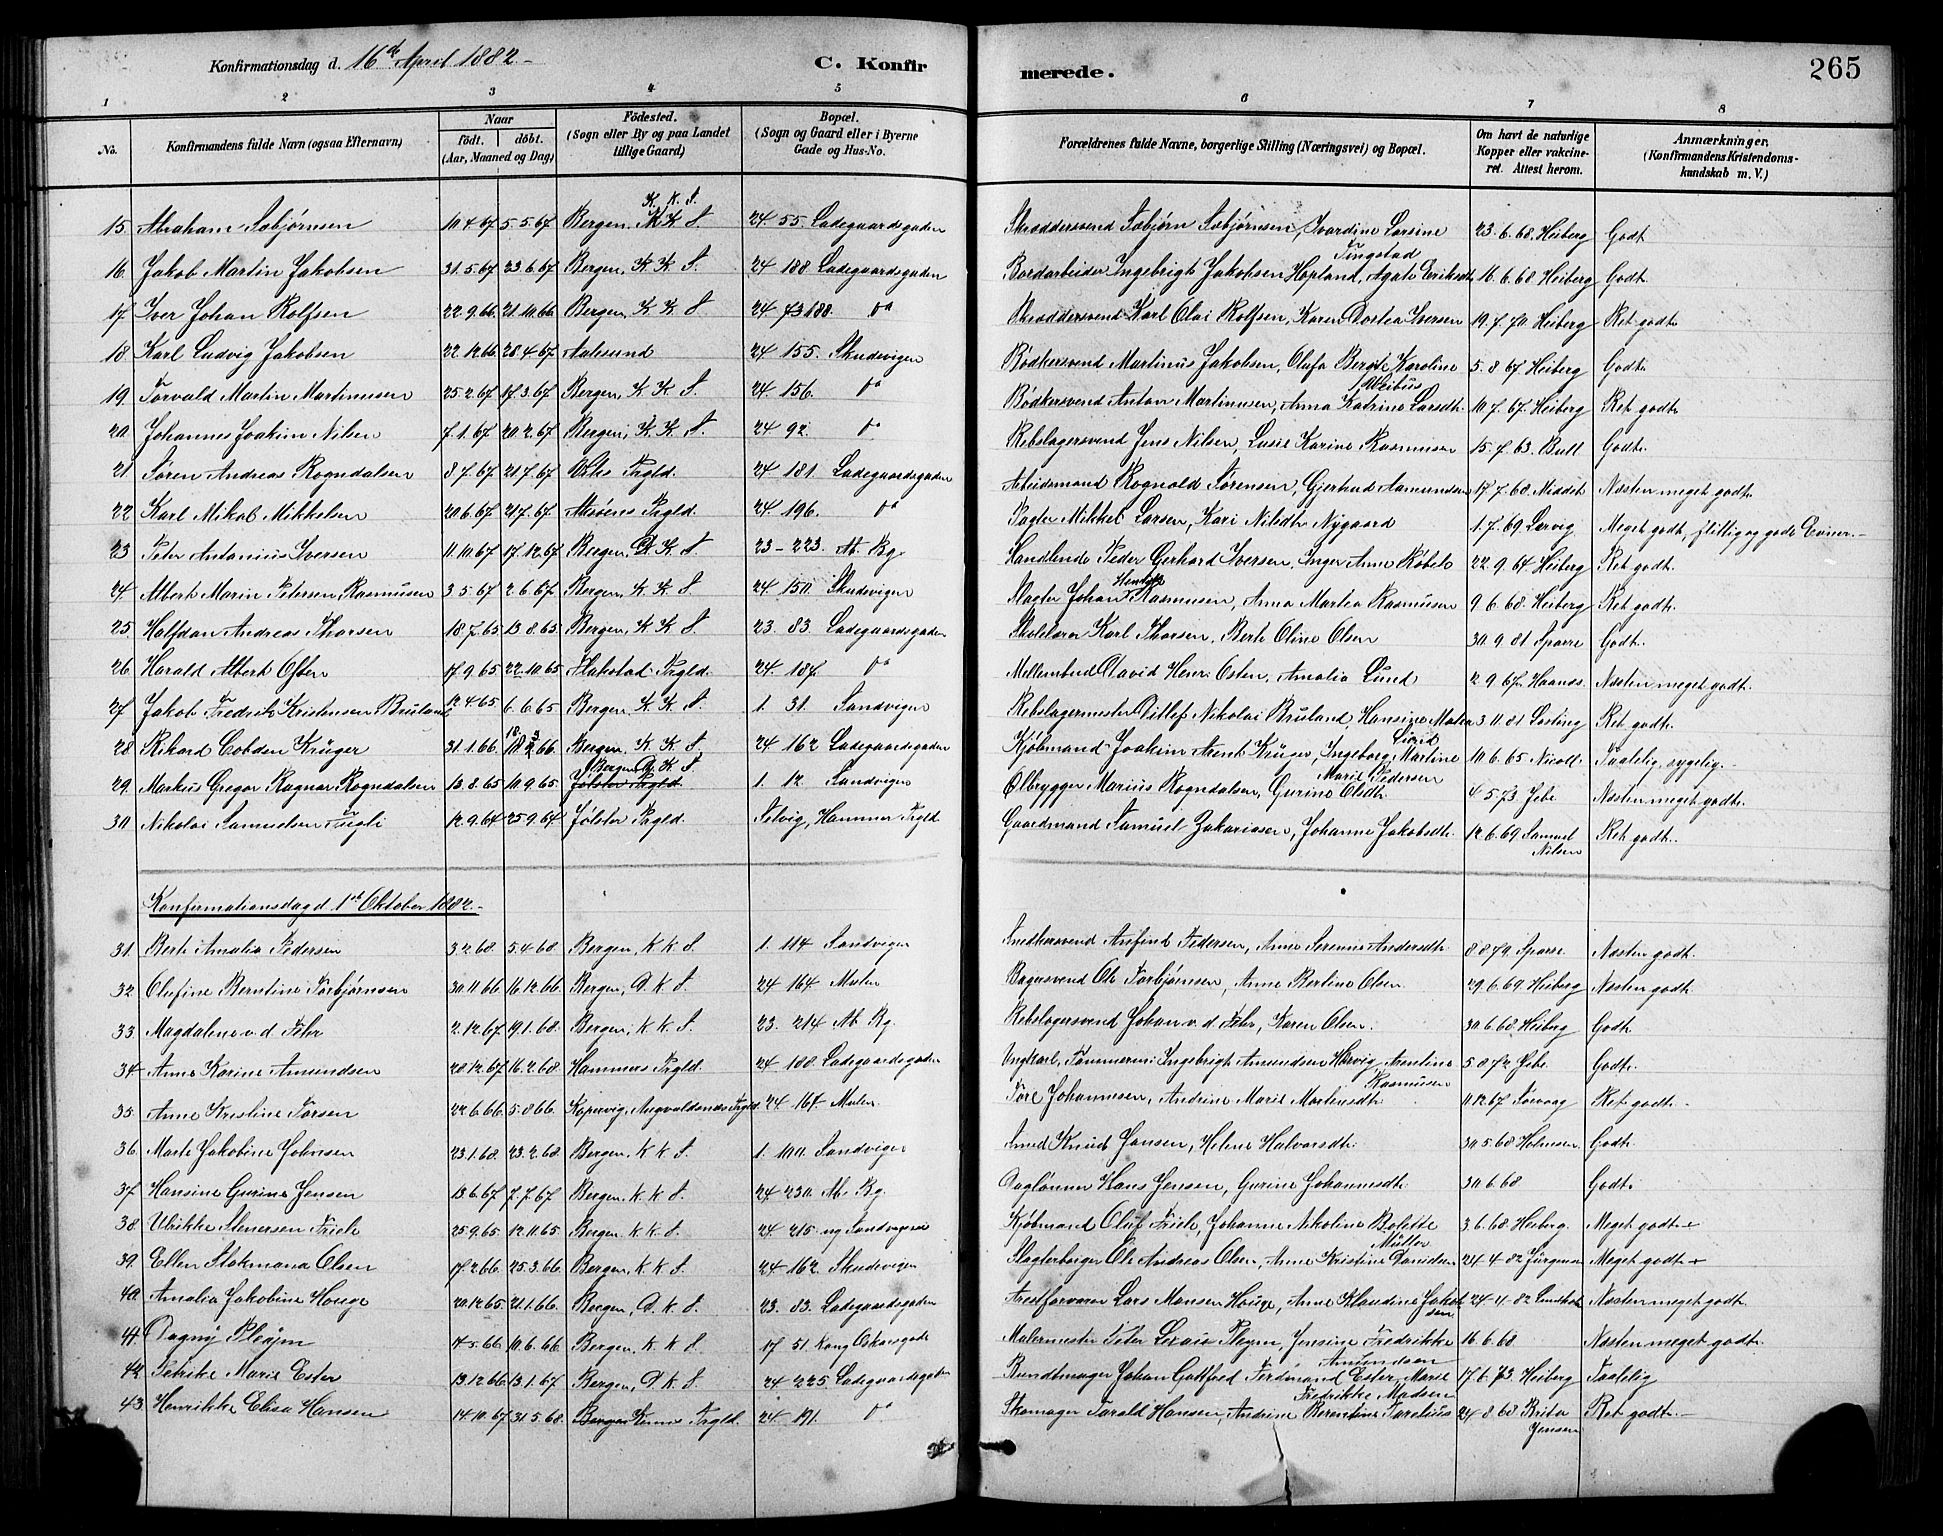 Konfirmationsdag d. 16de April 1882.
C. Konfirmerede.
265
1 2 3 4 5 6 7 8
No.
Konfirmandens fulde Navn (ogsaa Efternavn)
Naar
födt. döbt.
(Aar, Maaned og Dag)
Födested.
(Sogn eller By og paa Landet
tillige Gaard)
Bopæl.
(Sogn og Gaard eller i Byerne
Gade og Hus-No.
Forældrenes fulde Navne, borgerlige Stilling (Næringsvei) og Bopæl.
Om havt de naturlige
Kopper eller vakcine-
ret. Attest herom.
Anmærkninger.
(Konfirmandens Kristendoms-
kundskab m. V.)
15. Abraham Sæbjørnsen 10.4.67 5.5.67 Bergen, K. K. S. 24. 55. Ladegaardsgaden Skræddersvend Sæbjørn Sæbjørnsen, Ivardine Larsine Tingstad 23.6.68 Heiberg Godt
16. Jakob Martin Jakobsen 31.5.67 23.6.67 Bergen, K. K. S. 24 188 Ladegaardsgaden Bordarbeider Ingebrigt Jakobsen Hopland, Agate Eriksdt. 16.6.68 Heiberg Godt.
17. Iver Johan Rolfsen 22.9.66 21.10.66 Bergen, K. K. S 24 188. do Skræddersvend Karl Olai Rolfsen, Karen Dortea Iversen 19.7.70 Heiberg Ret godt
18. Karl Ludvig Jakobsen 22.12.66 28.4.67 Aalesund 24 155. Skudevigen Bødkersvend Martinus Jakobsen, Olufa Bergit Karoline 5.8.67 Heiberg Godt.
19. Torvald Martin Martinusen 25.2.67 17.3.67 Bergen, K. K. S. 24 156. do Bødkersvend Anton Martinusen, Anna Katrine Larsdt. 10.7.67. Heiberg Ret godt.
20. Johannes Joakim Nilsen 7.1.67 20.2.67 Bergen, K. K. S. 24 92. do Rebslagersvend Jens Nilsen, Lusie Karine Rasmusen 15.7.63. Bull Godt.
21. Søren Andreas Rogndalsen 8.7.67 21.7.67 Prgld. 24 181. Ladegaardsgaden Arbeidsmand Rognald Sørensen, Gjertrud Aamundsen 17.7.68 Næsten meget godt.
22 Karl Mikal Mikkelsen 20.6.67 21.7.67 Prgld. 24 196. do Mikkel Larsen, Kari Nilsdt. Nygaard 1.7.69 Lervig Meget godt, flittig og gode Evner.-
23 Peter Antonius Iversen 11.10.67 17.12.67 Bergen, D. K. S 23-223. M. Bg. Handlende Peder Gerhard Iversen, Inger Anne 22.9.64 Heiberg Ret godt.
24. Albert Marin Petersen Rasmusen 3.5.67 2.6.67 Bergen, K. K. S 24 150. Skudevigen Slagter Johan Rasmusen, Anna Martea Rasmusen 9.6.68. Heiberg Ret godt.
25. Halfdan Andreas Thorsen 18.7.65 13.8.65 Bergen, K. K. S. 23. 83. Ladegaardsgaden Skolelærer Karl Thorsen, Berte Oline Olsen 30.9.81 Sparre Godt.
26. Harald Albert Osten 17.9.65 22.10.65 Flakstad Prgld. 24. 187. do David Henr. Osten, Amalia Lund 2.9.67. Næsten meget godt.
27. Jakob Fredrik Kristensen Bruland 12.4.65 6.6.65 Bergen, K. K. S. 1. 31. Sandvigen Rebslagermester Ditlef Nikolai Bruland, Hansine 3.11.81 Ret godt.
28. Rikard Cobden Krüger 31.1.66. 18.3.66 Bergen, K. K. S. 24 162 Ladegaardsgaden Kjøbmand Joakim Arent Krüger, Ingeborg Martine 10.6.65 Nicoll. Taalelig, sygelig.
29. Markus Gregor Ragnar Rogndalsen 13.8.65 10.9.65 Bergen D. K. S. Jølster Prgld 1. 12. Sandvigen Ølbrygger Marius Rogndalsen, Gurine Olsdt. Marie Pedersen 4.5.73 Jebe Næsten meget godt.
30 Nikolai Samuelsen 12.9.64 25.9.64 Jølster Prgld. Selvig, Hammer Prgld Gaardmand Samuel Zakariasen, Johanne Jakobsdt. 12.6.69 Samuel Nilsen Ret godt.
Konfirmationsdag d. 1ste Oktober 1882.-
31. Berte Amalia Pedersen 3.2.68. 5.4.68. Bergen, K. K. S. 1. 114 Sandvigen Snedkersvend Anfind Pedersen, Anne Serine Andersdt. 8.8.79. Sparre. Næsten godt.
32. Olufine Berntine Torbjørnsen 30.11.66 16.12.66 Bergen, D. K. S. 24 164 Mulen Bagersvend Ole Torbjørnsen, Anne Bertine Olsen 29.6.69 Heiberg Næsten godt.
33. Magdalene v. d. Fehr 2.12.67 19.1.68. Bergen, K. K. S. 23. 214 M. Bg. Rebslagersvend Johan v. d. Fehr, Karen Olsen. 30.6.68 Heiberg Godt.
34. Anne Karine Amundsen 28.12.67 16.2.68. Hammers Prgld. 24 188. Ladegaardsgaden Ungkarl, Tømmerm: Ingebrigt Amundsen, Arentine Rasmusen 5.8.72 Jebe. Godt.
35. Anne Kristine Torsen 22.6.66. 5.8.66. Kopervig, Augvaldsnæs Prgld 24 161. Mulen. Tore Johannesen, Andrine Marie Mortensdt. 11.12.67 Ret godt.-
36. Marte Jakobine Johnsen 23.1.68. 23.2.68. Bergen, K. K. S. 1. 100 Sandvigen Knud Jansen, Helene Halvorsdt. 30.5.68 Holmsen. Godt.
37. Hansine Gurine Jensen 13.6.67 7.7.67. Bergen, K. K. S. 24 230 M. Bg. Dagløner Hans Jensen, Gurine Johannesdt. 30.6.68 Godt.
38. Ulrikke Stenersen Friele 25.9.65 12.11.65 Bergen, K. K. S. 24. 215. ny Sandvigsvei Kjøbmand Oluf Friele, Johanne Nikoline Bolette Müller 3.6.68. Heiberg Meget godt.-
39. Ellen Stokmana Olsen 17.2.66. 25.3.66 Bergen, K. K. S. 24 162. Skudevigen Slagterborger Ole Andreas Olsen, Anne Kristine Danielsen 24.4.82 Jürgensen Meget godt.
40. Amalia Jakobine Houge 20.12.65 21.1.66. Bergen, D. K. S. 23. 83. Ladegaardsgaden Arestforvarer Lars Monsen Houge, Anne Klaudine Jakobsen 24.4.82 Næsten meget godt.
41. Dagny Pleym 4.5.66 10.6.66 Bergen, K. K. S. 17 51. Kong Oskarsgade Malermester Peter Pleym, Jensine Fredrikke Amundsen 16.6.68. Næsten meget godt.
42. Petrike Marie Ester 13.12.66 13.1.67 Bergen, D. K. S. 24 225. Ladegaardsgaden Bundtmager Johan Gottfred Ferdinand Ester, Marie Fredrikke Madsen 17.6.73 Heiberg Taalelig
43. Henrikke Elisa Hansen 14.10.67 31.5.68. Bergen Kinns Prgld. 24 191. do Skomager Tarald Hansen, Andrine Berentine 24.8.68 Brita Jensen Ret godt.-